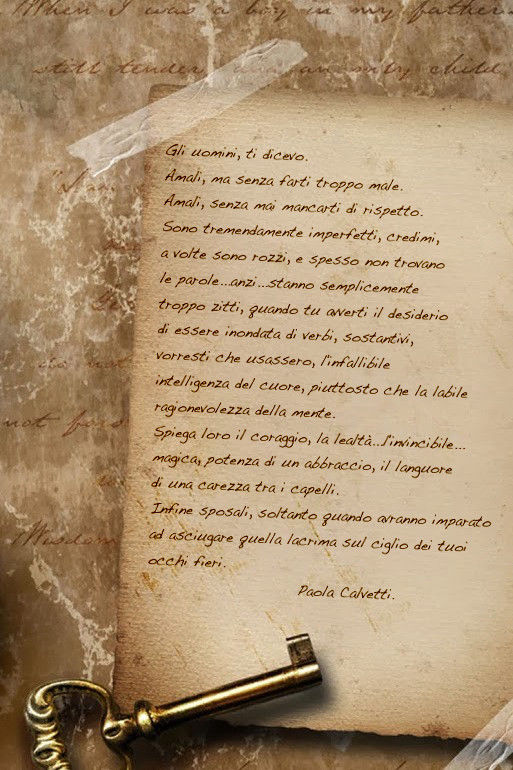 When I was a boy in my father
still tender an only child
Gli uomini, ti dicevo.
Amali, ma senza farti troppo male.
Amali, senza mai mancarti di rispetto.
Sono tremendamente imperfetti, credimi,
a volte sono rozzi, e spesso non trovano
le parole...anzi...stanno semplicemente
troppo zitti, quando tu avverti il desiderio
di essere inondata di verbi, sostantivi,
vorresti che usassero, l'infallibile
intelligenza del cuore, piuttosto che la labile
ragionevolezza della mente.
Spiega loro il coraggio, la lealtà...l'invincibile...
magica, potenza di un abbraccio, il languore
di una carezza tra i capelli.
Infine sposali, soltanto quando avranno imparato
ad asciugare quella lacrima sul ciglio dei tuoi
occhi fieri.
Paola Calvetti.
not
Wisdom